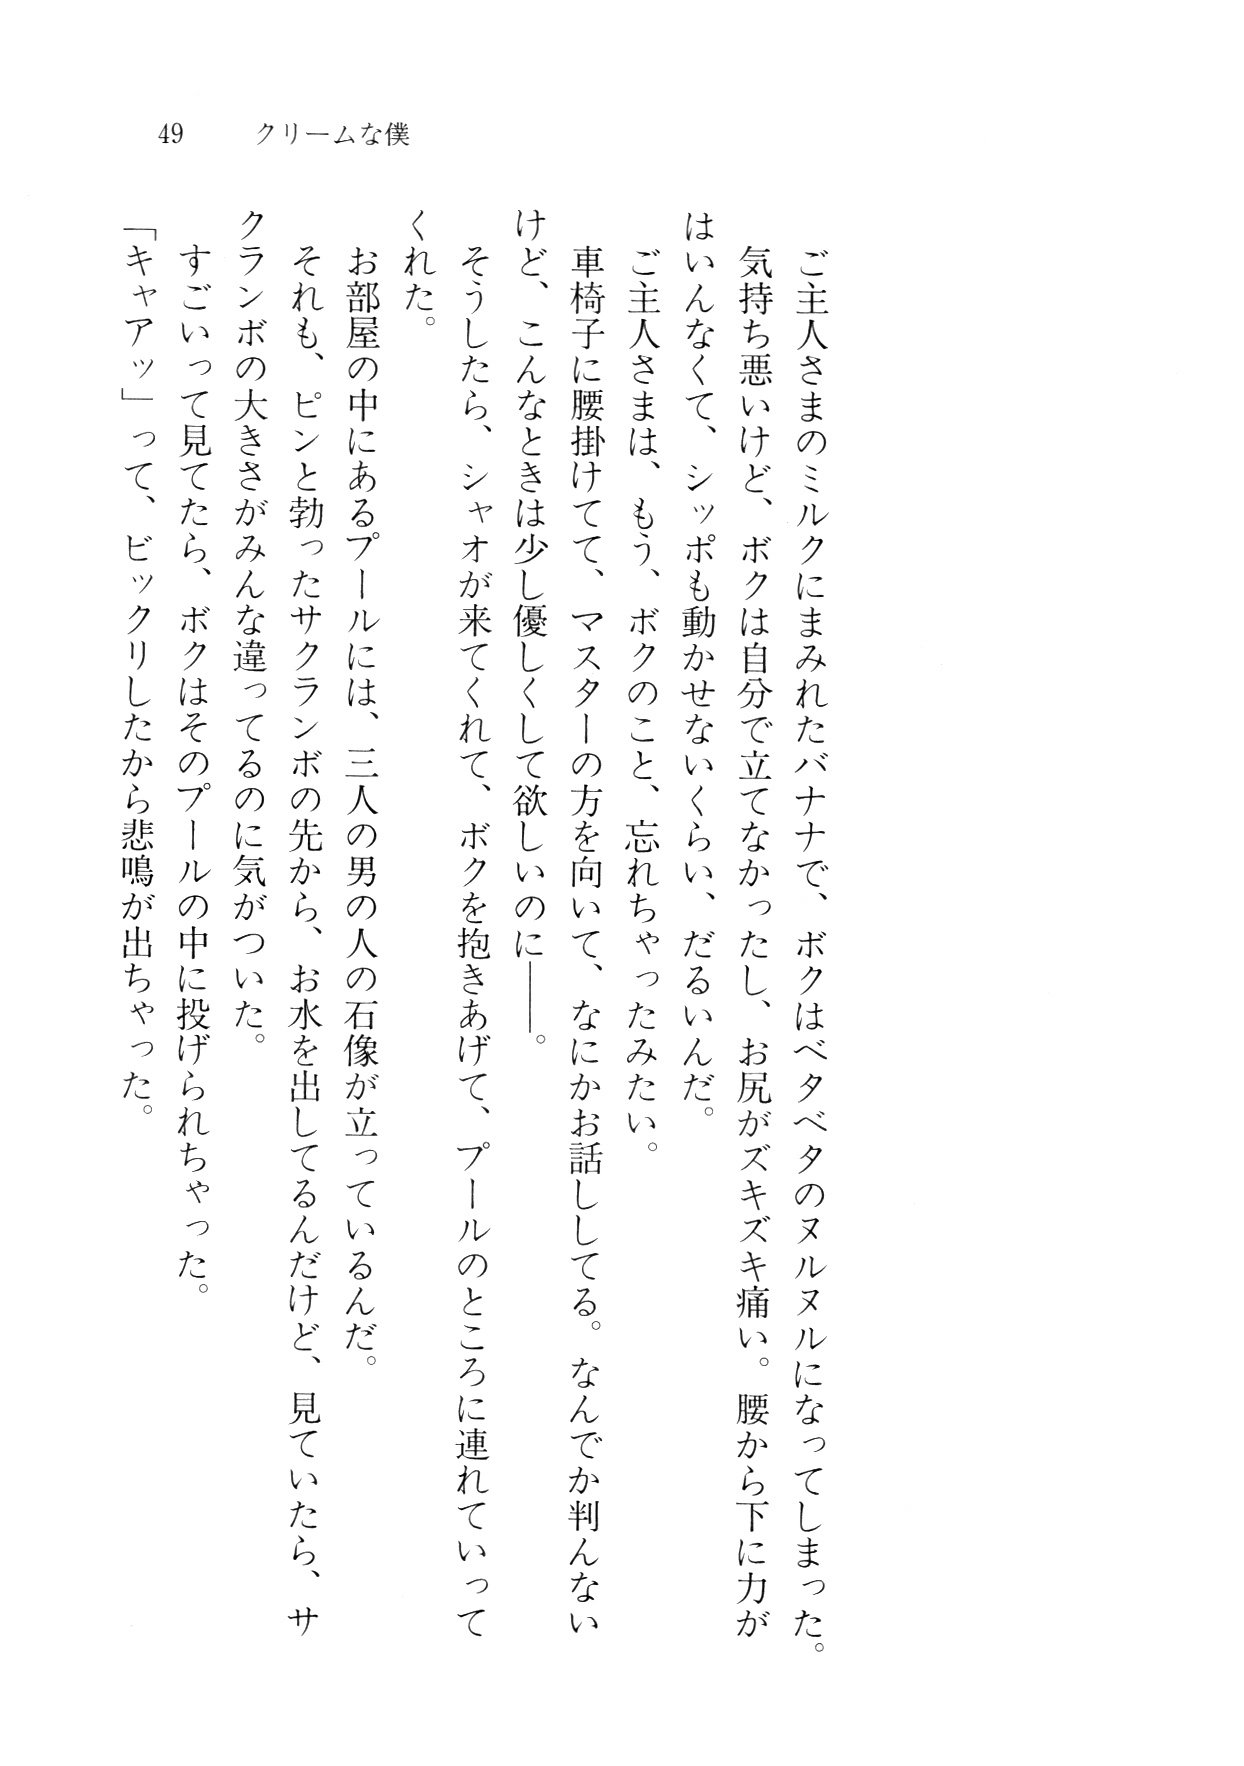 49　クリームな僕
ご主人さまのミルクにまみれたバナナで、ボクはベタベタのヌルヌルになってしまった。
気持ち悪いけど、ボクは自分で立てなかったし、お尻がズキズキ痛い。腰から下に力が
はいんなくて、シッポも動かせないくらい、だるいんだ。
ご主人さまは、もう、ボクのこと、忘れちゃったみたい。
車椅子に腰掛けてて、マスターの方を向いて、なにかお話ししてる。なんでか判んない
けど、こんなときは少し優しくして欲しいのに――。
そうしたら、シャオが来てくれて、ボクを抱きあげて、プールのところに連れていって
くれた。
お部屋の中にあるプールには、三人の男の人の石像が立っているんだ。
それも、ピンと勃ったサクランボの先から、お水を出してるんだけど、見ていたら、サ
クランボの大きさがみんな違ってるのに気がついた。
すごいって見てたら、ボクはそのプールの中に投げられちゃった。
「キャアッ」って、ビックリしたから悲鳴が出ちゃった。